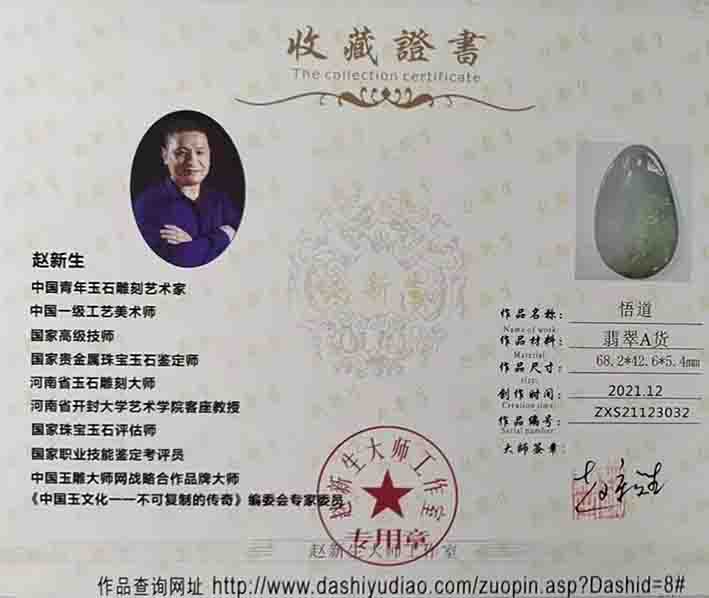 收藏證書
The collection certificate
赵新生
中国青年玉石雕刻艺术家
中国一级工艺美术师
国家高级技师
国家贵金属珠宝玉石鉴定师
河南省玉石雕刻大师
河南省开封大学艺术学院客座教授
国家珠宝玉石评估师
国家职业技能鉴定考评员
中国玉雕大师网战略合作品牌大师
《中国玉文化——不可复制的传奇》编委会专家委员
作品名称: 悟道
Name of work:
作品材料: 翡翠A货
Material:
作品尺寸: 68.2*42.6*5.4mm
size:
创作时间: 2021.12
Creation time:
作品编号: ZXS21123032
Serial number:
大师签章:
赵新生
赵新生大师工作室
专用章
赵新生大师工作室
作品查询网址 http://www.dashiyudiao.com/zuopin.asp?Dashid=8#